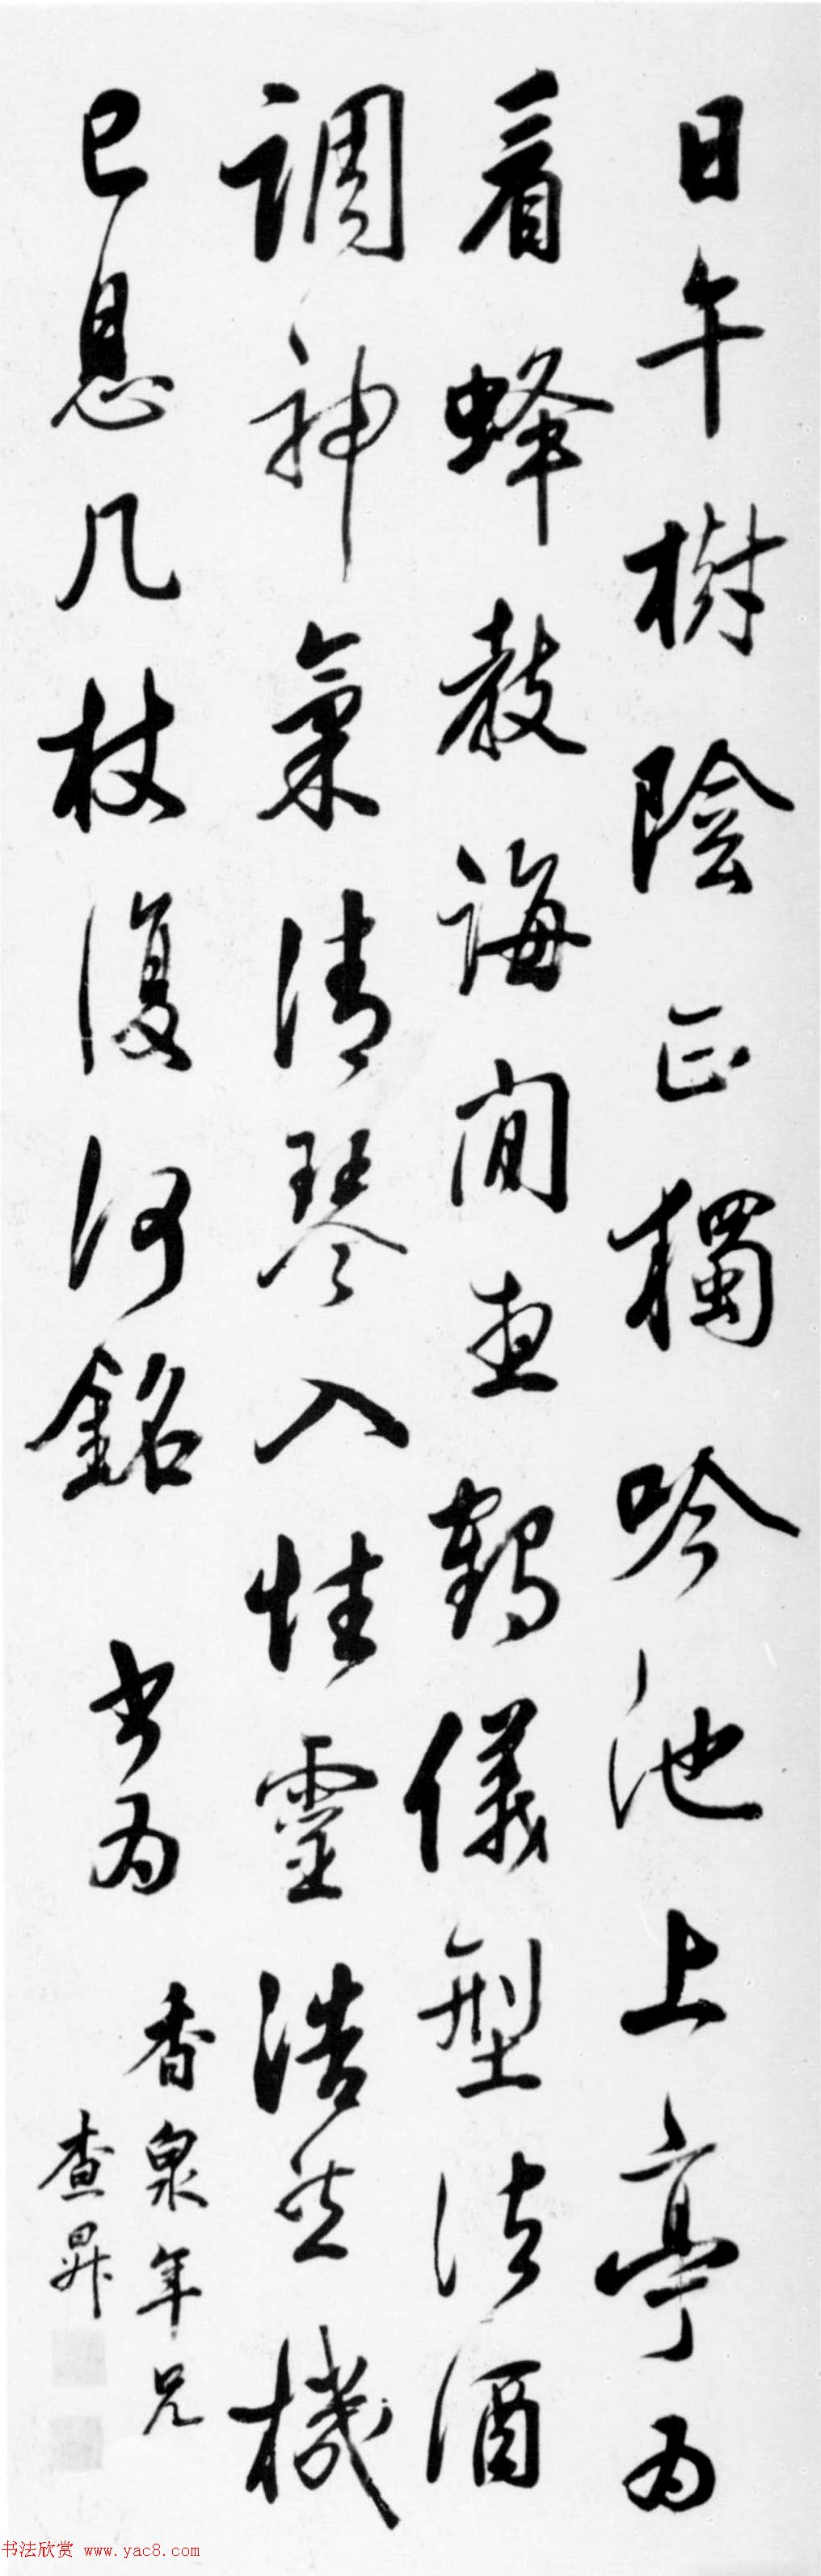 日午樹陰正獨吟池上亭為
看蜂教誨閒鶴儀型法酒
調神氣清琴入性靈浩然機
已息几杖復何銘 書為
香泉年兄
查昇
书法欣赏 www.yac8.com